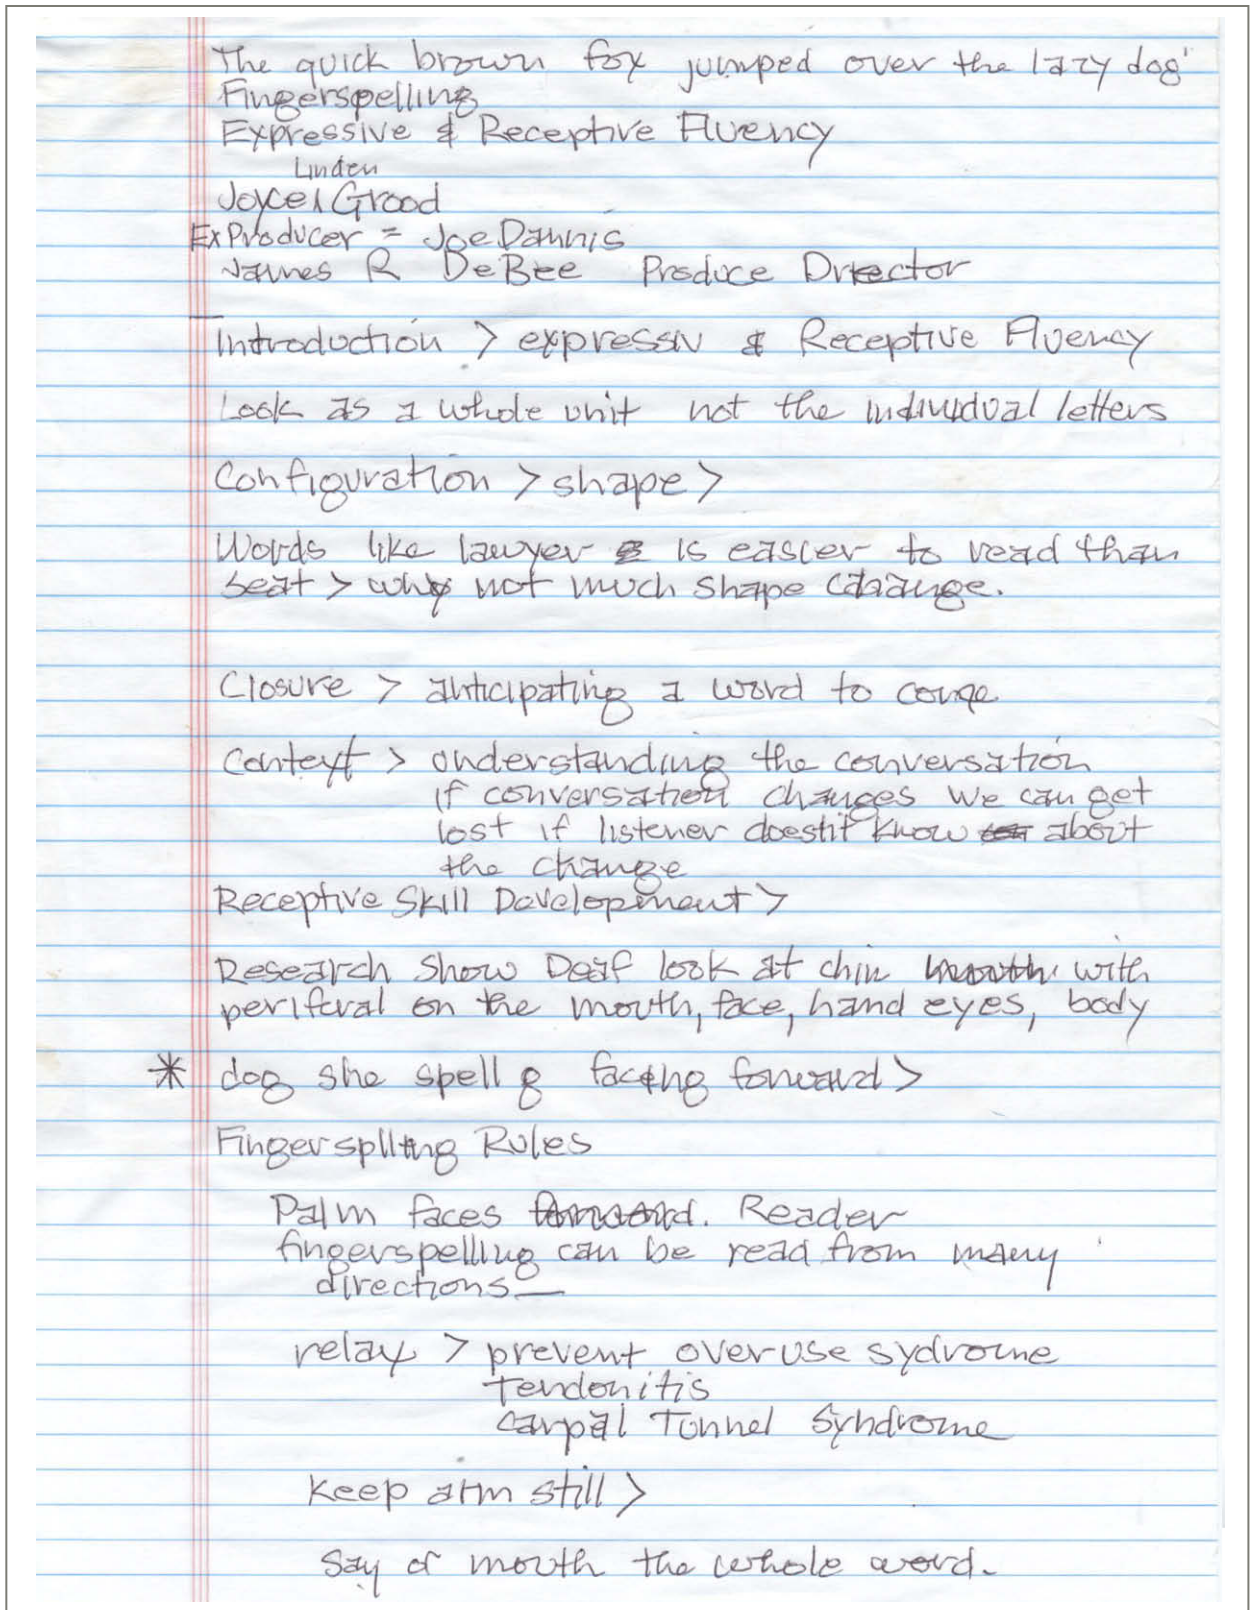 The quick brown fox jumped over the lazy dog"
Fingerspelling
Expressive & Receptive Fluency
Linden
Joyce Groad
Ex Producer = Joe Dannis
James R DeBee Produce Director
Introduction > expressiv & Receptive Fluency
Look as a whole unit not the individual letters
Configuration > shape >
Words like lawyer is easier to read than
seat > why not much shape change.
Closure > anticipating a word to come
Context > understanding the conversation
if conversation changes we can get
lost if listener doestit know about
the change
Receptive Skill Development >
Research show Deaf look at chin mouth with
periferal on the mouth, face, hand eyes, body
* dog she spell g facing forward >
Fingerspllting Rules
Palm faces forward. Reader
fingerspelling can be read from many
directions—
relax > prevent overuse sydrome
Tendonitis
Carpal Tunnel Syndrome
Keep arm still >
Say or mouth the whole word.